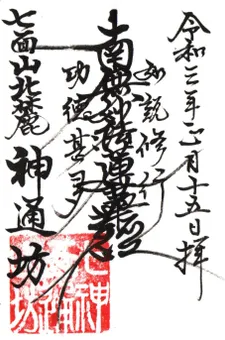 令和三年正月十五日拝
如説修行
南無妙法蓮華経
功徳甚多
七面山北麓
神通坊